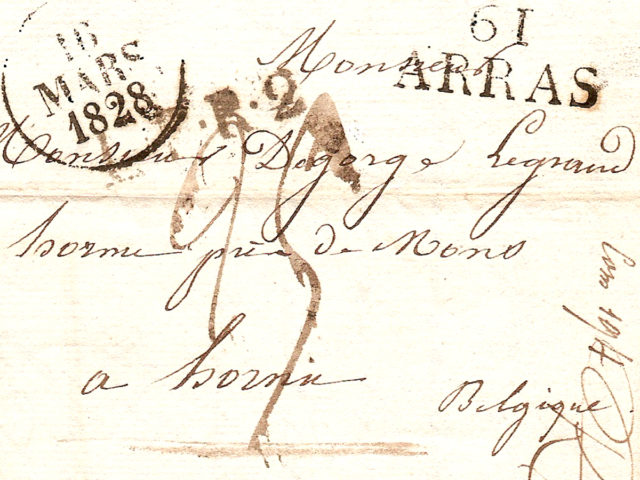 16
MARS
1828
61
ARRAS
Monsieur
L.F.R.2
Monsieur Degorge Legrand
hornu près de Mons
a hornu
Belgique